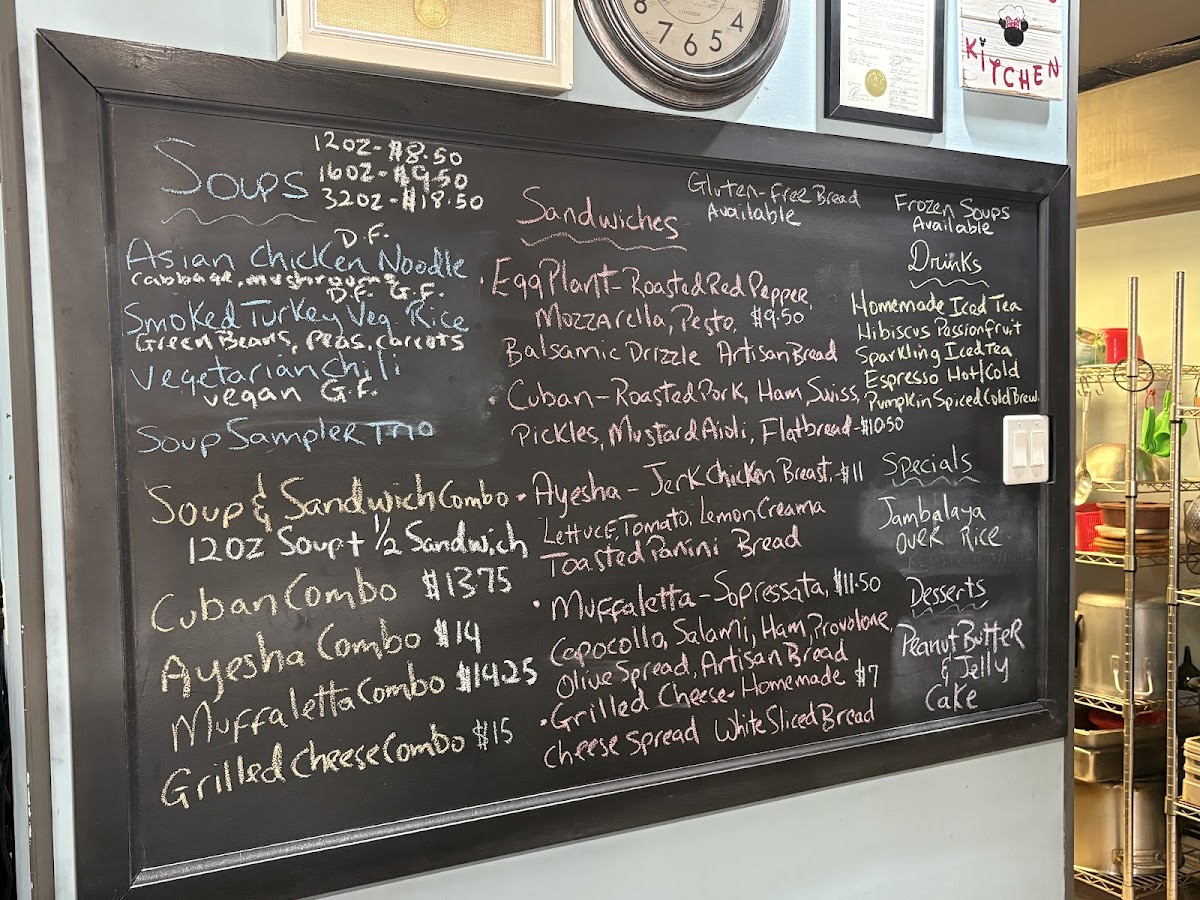 8 7 6 5 4
LONDON
KITCHEN
Soups
12oz-$8.50
16oz-$9.50
32oz-$18.50
D.F.
Asian Chicken Noodle
Cabbage, mushrooms
D.F. G.F.
Smoked Turkey Veg. Rice
Green Beans, Peas, Carrots
Vegetarian Chili
vegan G.F.
Soup Sampler Trio
Soup & Sandwich Combo
12oz Soup + 1/2 Sandwich
Cuban Combo $13.75
Ayesha Combo $14
Muffaletta Combo $14.25
Grilled Cheese Combo $15
Gluten-Free Bread
Available
Sandwiches
• EggPlant-Roasted Red Pepper,
Mozzarella, Pesto, $9.50
Balsamic Drizzle Artisan Bread
Cuban-Roasted Pork, Ham Suiss,
Pickles, Mustard Aioli, Flatbread-$10.50
• Ayesha - Jerk Chicken Breast,-$11
Lettuce, Tomato, Lemon Creama
Toasted Panini Bread
• Muffaletta-Sopressata, $11.50
Capocollo, Salami, Ham, Provolone,
Olive Spread, Artisan Bread
• Grilled Cheese-Homemade $7
Cheese Spread White Sliced Bread
Frozen Soups
Available
Drinks
Homemade Iced Tea
Hibiscus Passionfruit
Sparkling Iced Tea
Espresso Hot/Cold
Pumpkin Spiced Cold Brew.
Specials
Jambalaya
over Rice
Desserts
Peanut Butter
& Jelly
Cake